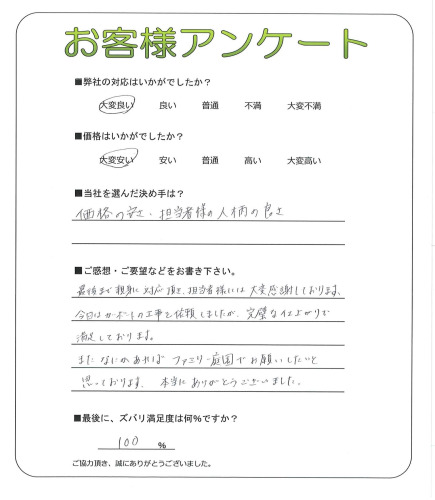 お客様アンケート
■弊社の対応はいかがでしたか？
大変良い 良い 普通 不満 大変不満
■価格はいかがでしたか？
大変安い 安い 普通 高い 大変高い
■当社を選んだ決め手は？
価格の安さ・担当者様の人柄の良さ
■ご感想・ご要望などをお書き下さい。
最後まで親身に対応頂き、担当者様には大変感謝しております。
今回はカーポートの工事を依頼しましたが、完璧な仕上がりで
満足しております。
またなにかあればファミリー庭園でお願いしたいと
思っております。 本当にありがとうございました。
■最後に、ズバリ満足度は何%ですか？
100 %
ご協力頂き、誠にありがとうございました。